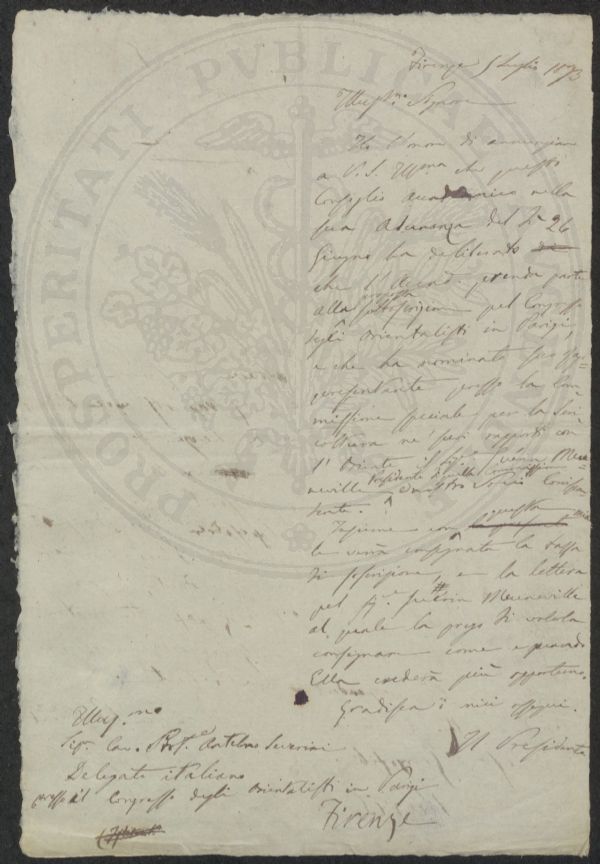 Firenze 5 Luglio 1873
Illus.mo Signore
Ho l'onore di annunziare
a V. S. Ill.ma che questo
Consiglio Accademico nella
sua Adunanza del 26
Giugno ha deliberato
che l'Accad. prenda parte
alla pel Congresso
degli Orientalisti in Parigi,
e che ha nominato suo rap=
presentante presso la Com=
missione speciale per la Seri=
coltura ne' suoi rapporti con
l'Oriente il Sig.
Presidente di quella commissione
nostro Socio Corrispon
dente.
Insieme con questa
le verrà consegnata la tassa
di soscrizione, e la lettera
pel Sig.
al quale la prego di volerla
consegnare come e quando
Ella crederà più opportuno.
Gradisca i miei ossequi.
Il Presidente
Illus.mo
Sig. Cav. Prof.e Antelmo Severini
Delegato italiano
presso il Congresso degli Orientalisti in Parigi
Firenze
PROSPERITATI PVBLICAE